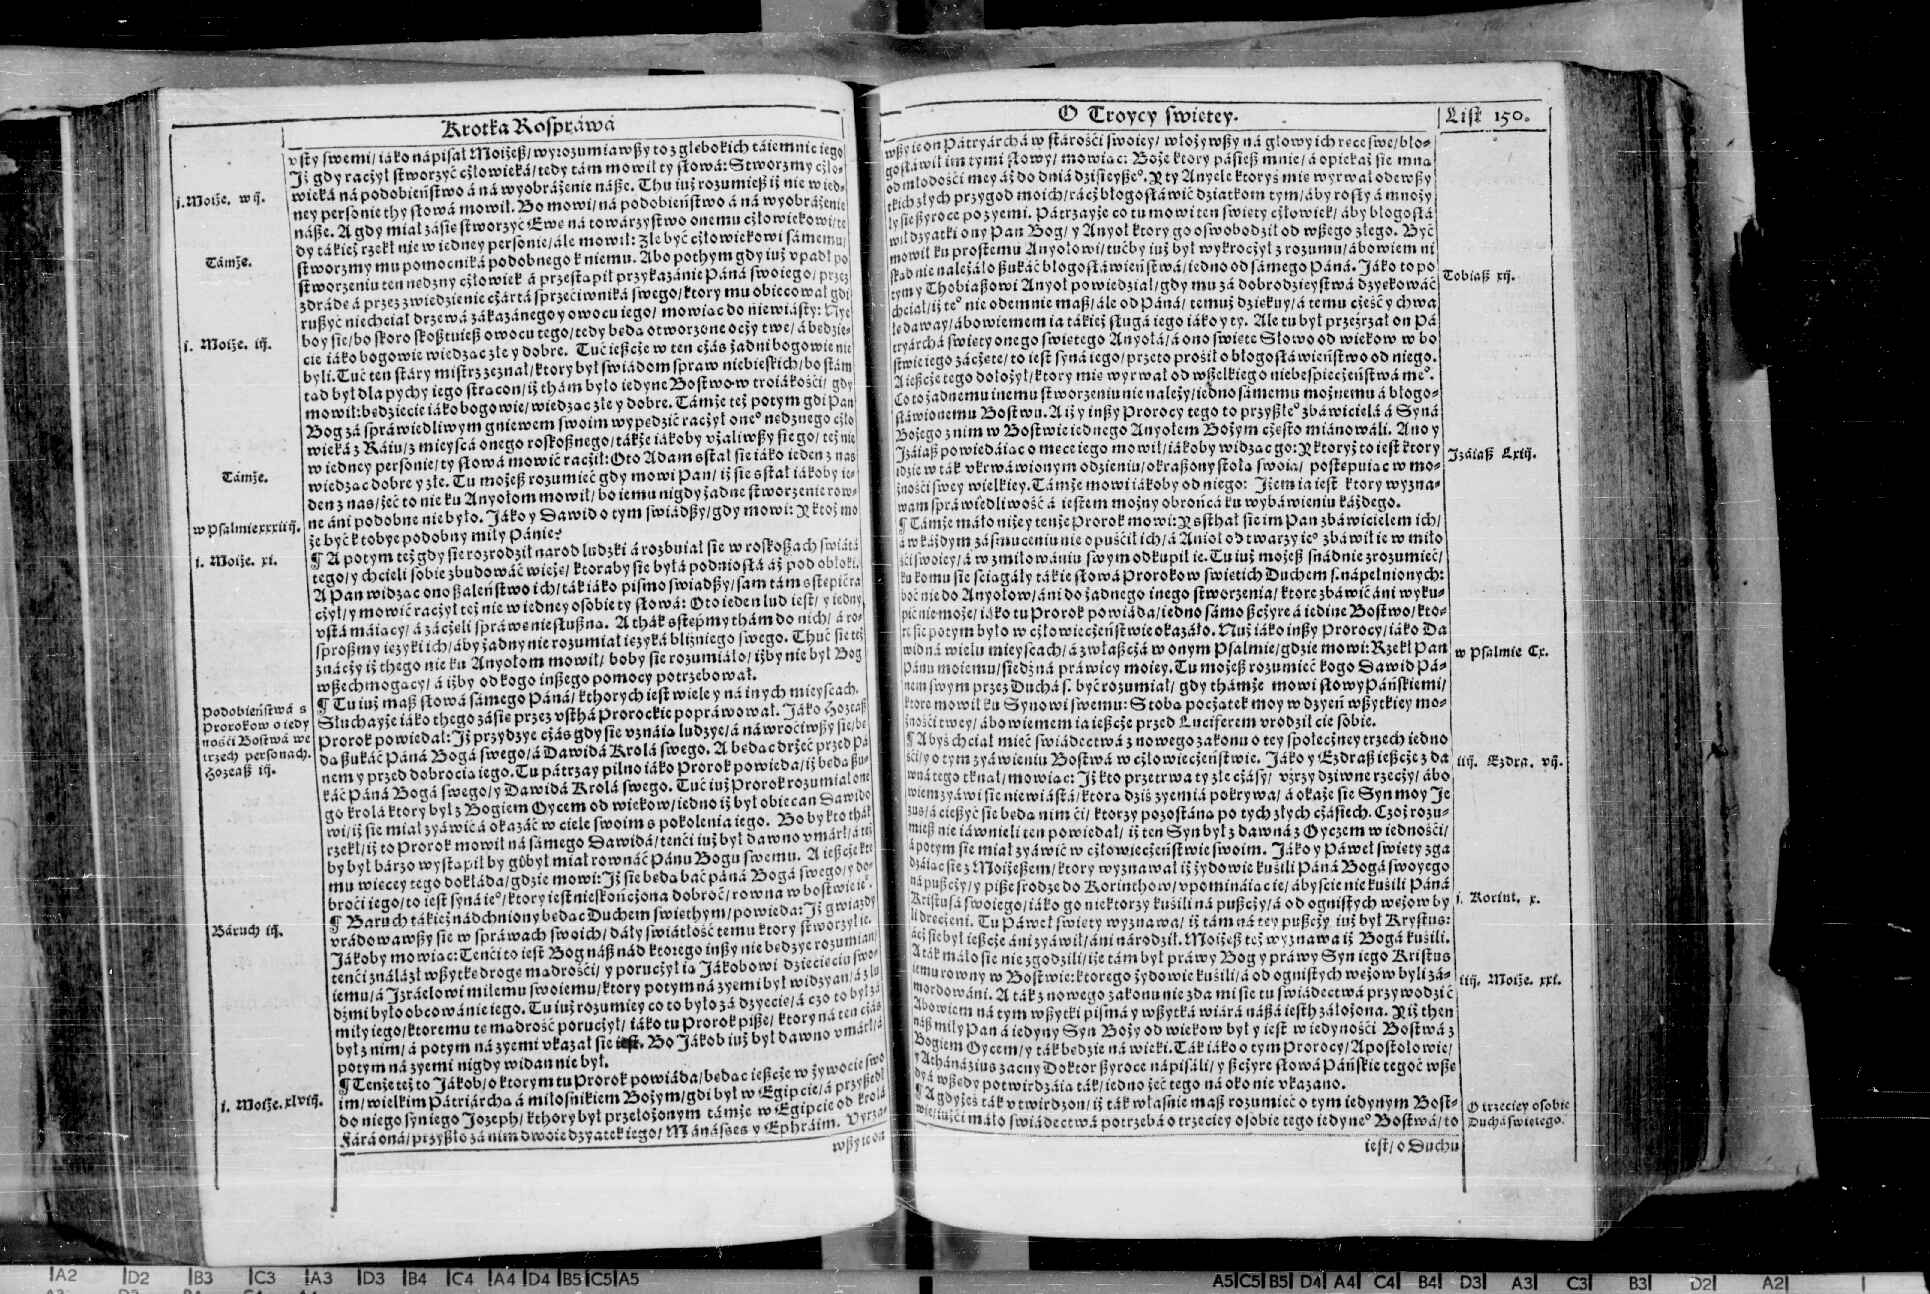 Krotka Rospráwá
vsty swemi/ iáko nápisał Moiżesz/ wyrozumiawszy to z głebokich táiemnic iego
Iż gdy raczył stworzyć człowieká/ tedy tám mowił ty słowá: Stworzmy czło-
wieká ná podobieństwo á ná wyobráżenie násze. Thu iuż rozumiesz iż nie w ied-
j. Moiże. wij.
ney personie thy słowá mowił. Bo mowi/ ná podobieństwo á ná wyobráżenie
násze. A gdy miał zásie stworzyć Ewe ná towárzystwo onemu człowiekowi/ te
dy tákież rzekł nie w iedney personie/ ále mowił: Zle być człowiekowi sámemu/
Támże.
stworzmy mu pomocniká podobnego k niemu. Abo pothym gdy iuż vpadł po
stworzeniu ten nedzny człowiek á przestąpił przykazánie Páná swoiego/ przez
zdráde á przez zwiedzienie czártá sprzeciwniká swego/ ktory mu obiecował gdi
ruszyć niechciał drzewá zákazánego y owocu iego/ mowiac do niewiásty: Nye
boy sie/ bo skoro skosztuiesz owocu tego/ tedy beda otworzone oczy twe/ á bedzie-
j. Moiże. iij.
cie iáko bogowie wiedzac złe y dobre. Tuć ieszcze w ten czás żadni bogowie nie
byli. Tuć ten stáry mistrz zeznał/ ktory był swiádom spraw niebieskich/ bo stám
tad był dla pychy iego stracon/ iż thám było iedyne Bostwo w troiákości/ gdy
mowił: bedziecie iáko bogowie/ wiedzac złe y dobre. Támże też potym gdi Pan
Bog zá spráwiedliwym gniewem swoim wypedzić raczył oneº nedznego czło
wieká z Ráiu/ z mieyscá onego roskosznego/ tákże iákoby vżaliwszy sie go/ też nie
w iedney personie/ ty słowá mowić racził: Oto Adam sstał sie iáko ieden z nas
wiedzac dobre y złe. Tu możesz rozumieć gdy mowi Pan/ iż sie sstał iákoby ie-
Támże.
den z nas/ żeć to nie ku Anyołom mowił/ bo iemu nigdy żadne stworzenie row-
ne áni podobne nie było. Jáko y Dawid o tym swiádszy/ gdy mowi: Y ktoż mo
w Psalmie xxxiiij.
że być k tobye podobny miły Pánie?
¶ A potym też gdy sie rozrodził narod ludzki á rozbuiał sie w roskoszach swiátá
i. Moiże. xi.
tego/ y chcieli sobie zbudowáć wieże/ ktoraby sie byłá podniosłá áż pod obłoki.
A Pan widzac ono szaleństwo ich/ ták iáko pismo swiadszy/ sam tám sstepić ra
czył/ y mowić raczył też nie w iedney osobie ty słowá: Oto ieden lud iest/ y iedny
vstá máiacy/ á záczeli spráwe niesłuszna. A thák sstepmy thám do nich/ á ro-
sprosmy iezyki ich/ áby żadny nie rozumiał iezyká bliźniego swego. Thuć sie też
znáczy iż thego nie ku Anyołom mowił/ boby sie rozumiáło/ iżby nie był Bog
wszechmogacy/ á iżby od kogo inszego pomocy potrzebował.
¶ Tu iuż masz słowá sámego Páná/ kthorych iest wiele y ná inych mieyscach.
Podobieństwá s
Prorokow o iedy
ności Bostwá we
trzech personach.
Hozeasz iij.
Słuchayże iáko thego zásie przez vsthá Prorockie popráwował. Jáko Hozeasz
Prorok powiedał: Iż przydzye czás gdy sie vznáia ludzye/ á náwrociwszy sie/ be
da szukáć Páná Bogá swego/ á Dawidá Krolá swego. A bedac drżeć przed Pá
nem y przed dobrocia iego. Tu pátrzay pilno iáko Prorok powieda/ iż beda szu-
káć Páná Bogá swego/ y Dawidá Krolá swego. Tuć iuż Prorok rozumiał one
go krolá ktory był z Bogiem Oycem od wiekow/ iedno iż był obiecan Dawido
wi/ iż sie miał zyáwić á okazáć w ciele swoim s pokolenia iego. Bo by kto thák
rzekł/ iż to Prorok mowił ná sámego Dawidá/ tenći iuż był dawno vmárł/ á też
by był bárzo wystąpił by gi był miał rownáć Pánu Bogu swemu. A ieszcze kte
mu wiecey tego dokłáda/ gdzie mowi: Iż sie beda bać páná Bogá swego/ y do-
broci iego/ to iest syná ieº/ ktory iest nieskończona dobroć/ rowna w bostwie ieº.
¶ Báruch tákież nádchniony bedac Duchem swiethym/ powieda: Iż gwiazdy
Báruch iij.
vrádowawszy sie w spráwach swoich/ dáły swiátłość temu ktory stworzył ie.
Jákoby mowiac: Tenći to iest Bog nász nád ktorego inszy nie bedzye rozumian/
tenći ználazł wszytke droge madrości/ y poruczył ia Jákobowi dziecieciu swo-
iemu/ á Izráelowi miłemu swoiemu/ ktory potym ná zyemi był widzyan/ á z lu
dźmi było obcowánie iego. Tu iuż rozumiey co to było zá dzyecie/ á czo to był zá
miły iego/ ktoremu te madrość poruczył/ iáko tu Prorok pisze/ ktory ná ten czás
był z nim/ á potym ná zyemi vkazał sie iest. Bo Jákob iuż był dawno vmárł/ á
potym ná zyemi nigdy widan nie był.
¶ Tenże też to Jákob/ o ktorym tu Prorok powiáda/ bedac ieszcze w żywocie swo
i. Moiże. xlviij.
im/ wielkim Pátriárchá á miłosnikiem Bożym/ gdi był w Egipcie/ á przyszedł
do niego syn iego Jozeph/ kthory był przełożonym támże w Egipcie od krolá
Faráoná/ przyszło zá nim dwoie dzyatek iego/ Mánásses y Ephráim. Vyrza-
wszy ie on

O Troycy swietey.
List 150.
wszy ie on Pátryárchá w stárości swoiey/ włożywszy ná głowy ich rece swe/ bło-
gosłáwił im tymi słowy/ mowiac: Boże ktory pásiesz mnie/ á opiekasz sie mna
od młodości mey áż do dniá dzisieyszeº. Y ty Anyele ktoryś mie wyrwał odewszy
tkich złych przygod moich/ rácz błogosłáwić dziatkom tym/ áby rosły á mnoży
ły sie szyroce po zyemi. Pátrzayże co tu mowi ten swiety człowiek/ áby błogosłá
wił dzyatki ony Pan Bog/ y Anyoł ktory go oswobodził od wszego złego. Być
mowił ku prostemu Anyołowi/ tućby iuż był wykroczył z rozumu/ ábowiem ni
skąd nie należáło szukáć błogosłáwieństwá/ iedno od sámego Páná. Jáko to po
tym y Thobiaszowi Anyoł powiedział/ gdy mu zá dobrodzieystwá dzyekowáć
Tobiasz xij.
chciał/ iż teº nie odemnie masz/ ále od Páná/ temuż dziekuy/ á temu cześć y chwa
łe daway/ ábowiemem ia tákież sługá iego iáko y ty. Ale tu był przeźrzał on Pá
tryárchá swiety onego swietego Anyołá/ á ono swiete Słowo od wiekow w bo
stwie iego záczete/ to iest syná iego/ przeto prosił o błogosłáwieństwo od niego.
A ieszcze tego dołożył/ ktory mie wyrwał od wszelkiego niebespieczeństwá meº.
Co to żadnemu inemu stworzeniu nie należy/ iedno sámemu możnemu á błogo-
słáwionemu Bostwu. A iż y inszy Prorocy tego to przyszłeº zbáwicielá á Syná
Bożego z nim w Bostwie iednego Anyołem Bożym czesto miánowáli. Ano y
Izáiasz powiedáiac o mece iego mowił/ iákoby widzac go: Y ktoryż to iest ktory
Izáiasz Lxiij.
idzie w ták vkrwáwionym odzieniu/ okraszony stołą swoia/ postepuiac w mo-
żności swey wielkiey. Támże mowi iákoby od niego: Iżem ia iest ktory wyzna-
wam spráwiedliwość á iestem możny obrońcá ku wybáwieniu káżdego.
¶ Támże máło niżey tenże Prorok mowi: Y ssthał sie im Pan zbáwicielem ich/
á w káżdym zásmuceniu nie opuścił ich/ á Anioł od twarzy ieº zbáwił ie w miło
ści swoiey/ á w zmiłowániu swym odkupił ie. Tu iuż możesz snádnie zrozumieć/
ku komu sie sciagáły tákie słowá Prorokow swietich Duchem s. nápełnionych:
boć nie do Anyołow/ áni do żadnego inego stworzenia/ ktore zbáwić áni wyku-
pić nie może/ iáko tu Prorok powiáda/ iedno sámo szczyre á iedine Bostwo/ kto-
re sie potym było w człowieczeństwie okazáło. Nuż iáko inszy Prorocy/ iáko Da
wid ná wielu mieyscach/ á zwłaszczá w onym Psalmie/ gdzie mowi: Rzekł Pan
w Psalmie Cx.
Pánu moiemu/ siedź ná práwicy moiey. Tu możesz rozumieć kogo Dawid Pá-
nem swym przez Duchá s. być rozumiał/ gdy thámże mowi słowy Páńskiemi/
ktore mowił ku Synowi swemu: S toba początek moy w dzyeń wszytkiey mo-
żności twey/ ábowiemem ia ieszcze przed Luciferem vrodził cie sobie.
¶ Abyś chciał mieć swiádectwá z nowego zakonu o tey społeczney trzech iedno
ści/ y o tym zyáwieniu Bostwá w człowieczeństwie. Jáko y Ezdrasz ieszcze z da
iiij. Ezdra. vij.
wná tego tknał/ mowiac: Iż kto przetrwa ty złe czásy/ vźrzy dziwne rzeczy/ ábo
wiem zyáwi sie niewiástá/ ktora dziś zyemiá pokrywa/ á okaże sie Syn moy Je
zus/ á cieszyć sie beda nim ći/ ktorzy pozostána po tych złych czásiech. Czoż rozu-
miesz nie iáwnieli ten powiedał/ iż ten Syn był z dawná z Oyczem w iedności/
á potym sie miał zyáwić w człowieczeństwie swoim. Jáko y Páweł swiety zga
dzáiac sie z Moiżeszem/ ktory wyznawał iż żydowie kusili Páná Bogá swoyego
ná pusczy/ y pisze srodze do Korinthow/ vpomináiac ie/ ábyscie nie kusili Páná
Kristusá swoiego/ iáko go niektorzy kusili ná pusczy/ á od ognistych weżow by
i. Korint. x.
li dreczeni. Tu Páweł swiety wyznawa/ iż tám ná tey pusczy iuż był Krystus:
ácż sie był ieszcze áni zyáwił/ áni národził. Moiżesz też wyznawa iż Bogá kusili.
A ták máło sie nie zgodzili/ iże tám był práwy Bog y práwy Syn iego Kristus
iemu rowny w Bostwie: ktorego żydowie kusili/ á od ognistych weżow byli zá-
iiij. Moiże. xxi.
mordowáni. A ták z nowego zakonu nie zda mi sie tu swiádectwá przywodzić
Abowiem ná tym wszytki pismá y wszytká wiárá nászá iesth záłożona. Y iż then
nász miły Pan á iedyny Syn Boży od wiekow był y iest w iedyności Bostwá z
Bogiem Oycem/ y ták bedzie ná wieki. Ták iáko o tym Prorocy/ Apostołowie/
y Athánázius zacny Doktor szyroce nápisáli/ y szczyre słowá Páńskie tegoć wsze
dyá wszedy potwirdzáia ták/ iedno żeć tego ná oko nie vkazano.
¶ A gdyżeś ták vtwirdzon/ iż ták własnie masz rozumieć o tym iedynym Bost-
O trzeciey osobie
Duchá swietego.
wie/ iużći máło swiádectwá potrzebá o trzeciey osobie tego iedyneº Bostwá/ to
iest/ o Duchu
A2 D2 B3 C3 A3 D3 B4 C4 A4 D4 B5 C5 A5
A5 C5 B5 D4 A4 C4 B4 D3 A3 C3 B3 D2 A2